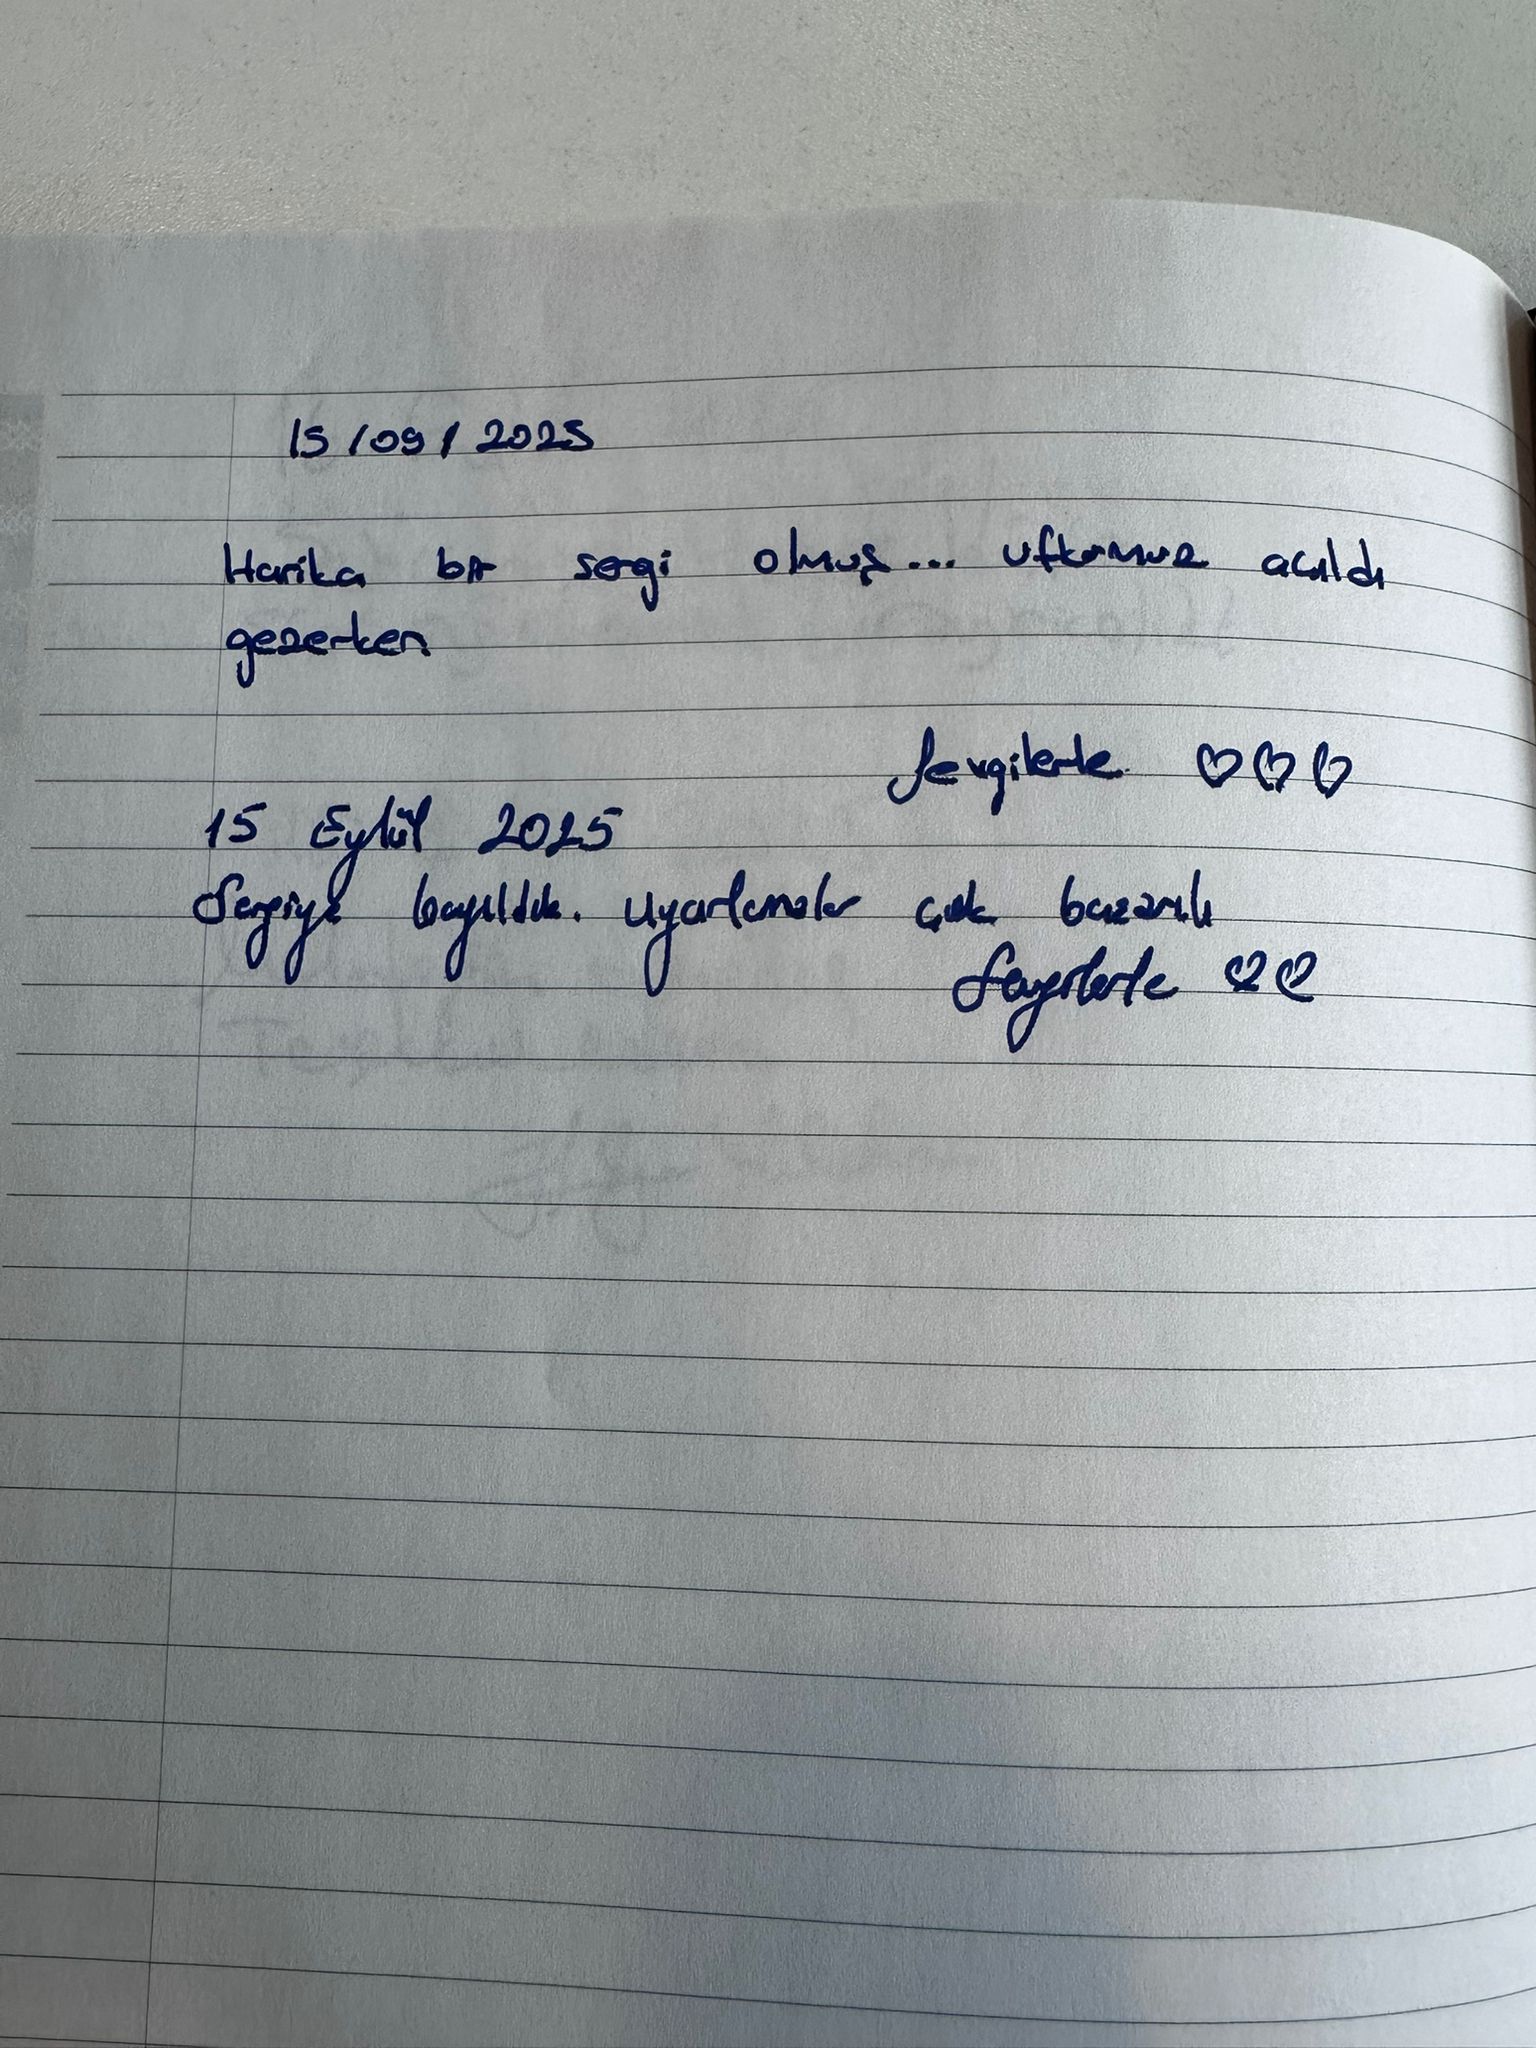 15/09/2025
Harika bir sergi olmuş... ufkumuz açıldı
gezerken
Sevgilerle ♡♡♡
15 Eylül 2025
Sergiye bayıldık. Uyarlamalar çok başarılı
Sevgilerle ♡♡